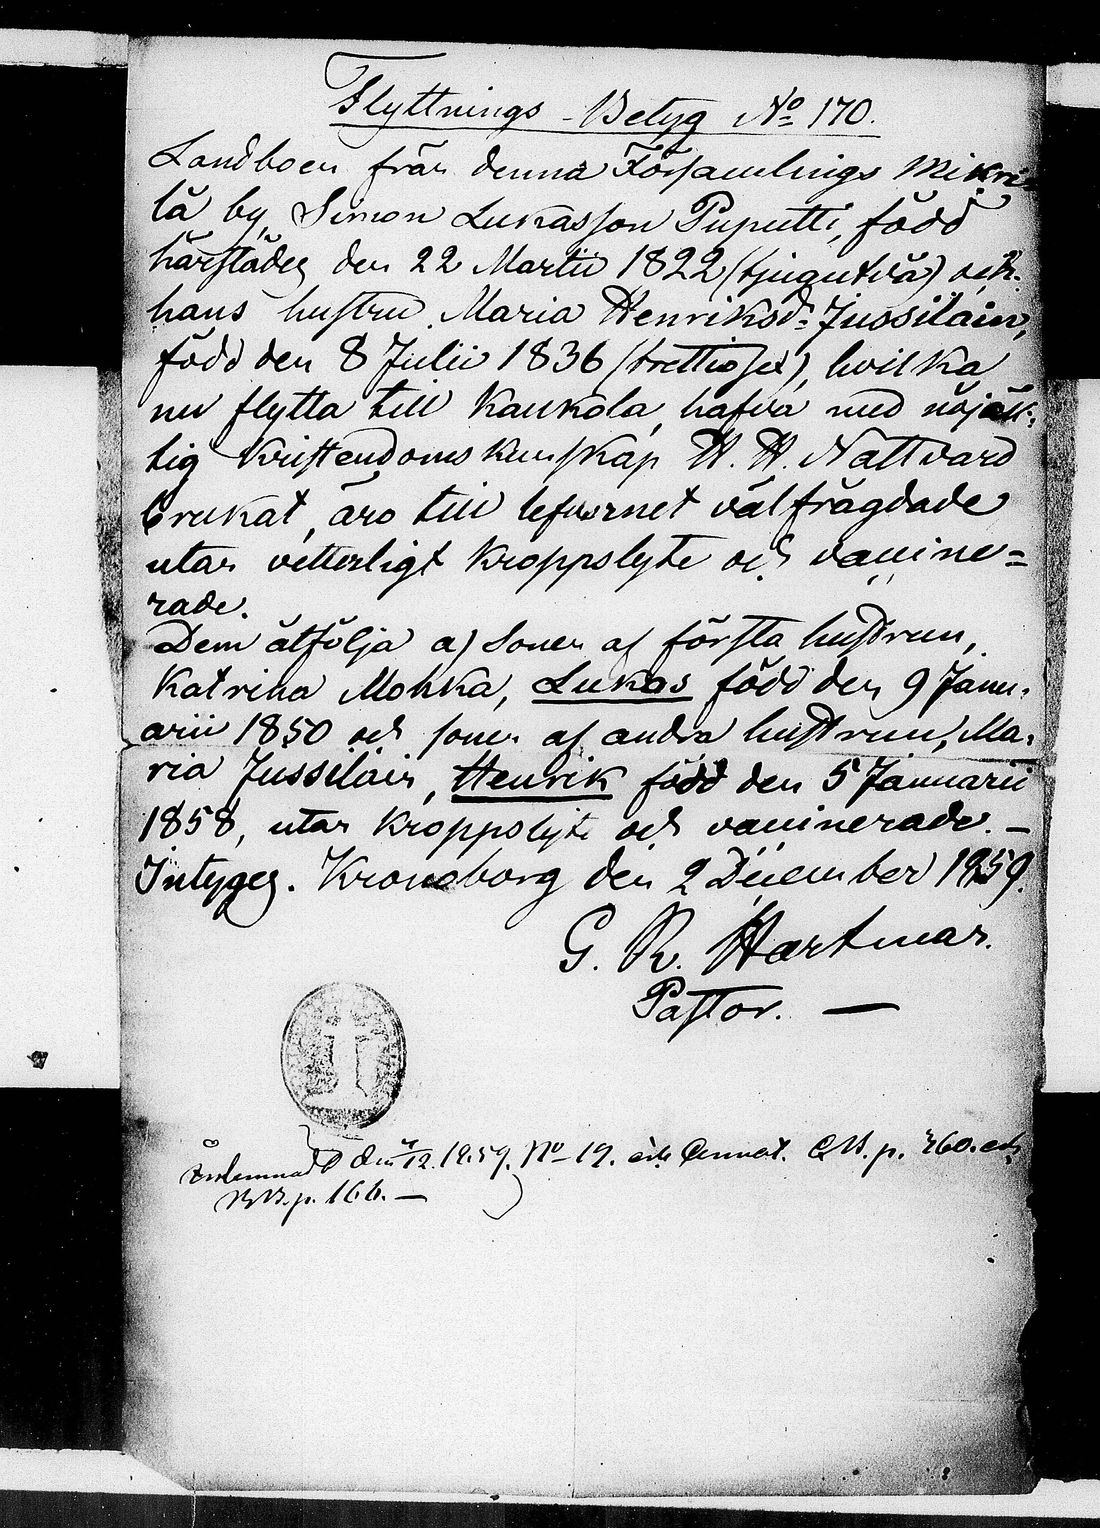 Flyttnings-Betyg No 170.
Landboen från denna Församlings Mikri-
lä by, Simon Lukasson Puputti, född
härstädes den 22 Martii 1822 (tjugutvå) och
hans hustru Maria Henriksd: Jussiläin,
född den 8 Julii 1836 (trettiosex), hvilka
nu flytta till Kaukola, hafva med nöjakt-
lig kristendomskunskap H. H. Nattvard
brukat, äro till lefvernet välfrägdade
utan vetterligt kroppslyte och vaccine=
rade.
Dem åtfölja a) sonen af första hustrun,
Katrina Mohka, Lukas född den 9 Janu-
arii 1850 och sonen af andra hustrun, Ma-
ria Jussiläin, Henrik född den 5 Januarii
1858, utan kroppslyte och vaccinerade. —
Intyges. Kronoborg den 2 December 1859.
G. R. Hartman.
Pastor. —
den 12. 1859. No 19. och p. 760. och
p. 166. —